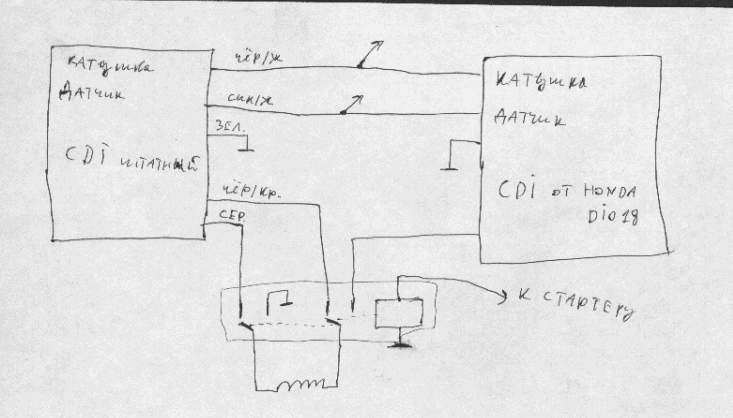 КАТушка
ДАТчик
CDi штАТНый
чёр/ж
син/ж
ЗЕЛ.
чёр/кр.
СЕР.
КАТушка
ДАТчик
CDi от HONDA
DiO 18
К СТАРТЕРу